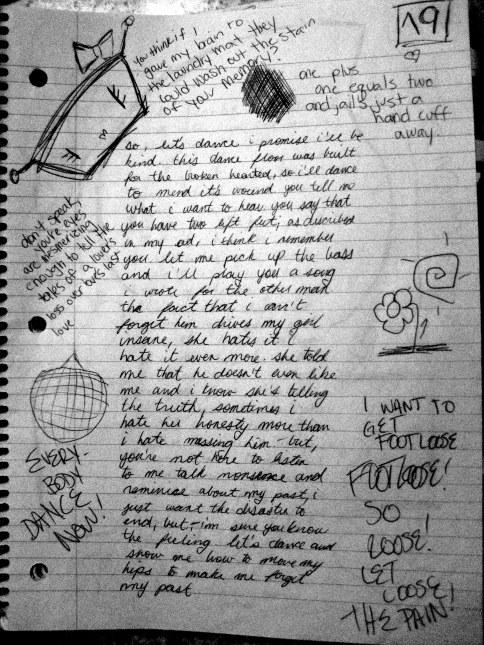 19
You think if I
gave my brain to
the laundry mat they
could wash out the stain
of your memory?
one plus
one equals two
and jail's just a
hand cuff
away.
so, let's dance i promise i'll be
kind. this dance floor was built
for the broken hearted, so i'll dance
to mend it's wound you tell me
what i want to hear. you say that
you have two left feet, as discribed
in my ad, i think i remember
you let me pick up the bass
and i'll play you a song
i wrote for the other man
the fact that i can't
forget him drives my girl
insane, she hates it i
hate it even more. she told
me that he doesn't even like
me and i know she's telling
the truth, sometimes i
hate her honesty more than
i hate missing him but,
you're not here to listen
to me talk nonsence and
reminise about my past, i
just want the disaster to
end, but, i'm sure you know
the feeling let's dance and
show me how to move my
hips to make me forget
my past.
don't speak,
you're eyes
are mesmerizing
enough to tell the
tales of a lover's
loss over ours lost
love
EVERY-
BODY
DANCE
NOW!
I WANT TO
GET
FOOTLOOSE
FOOTLOOSE!
SO
LOOSE!
LET
LOOSE!
THE PAIN!